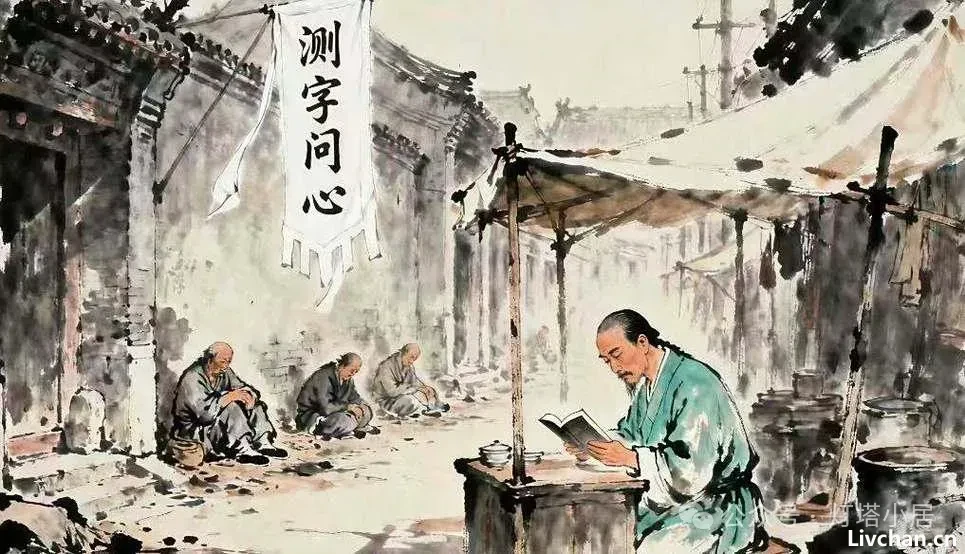 测字问心
公众号 · 灯塔小居
Livchan.cn